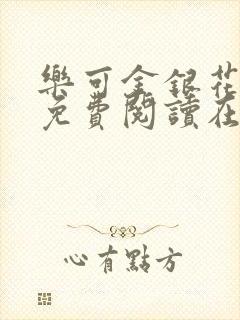 樂可金銀花
免費閱讀在
心有點方